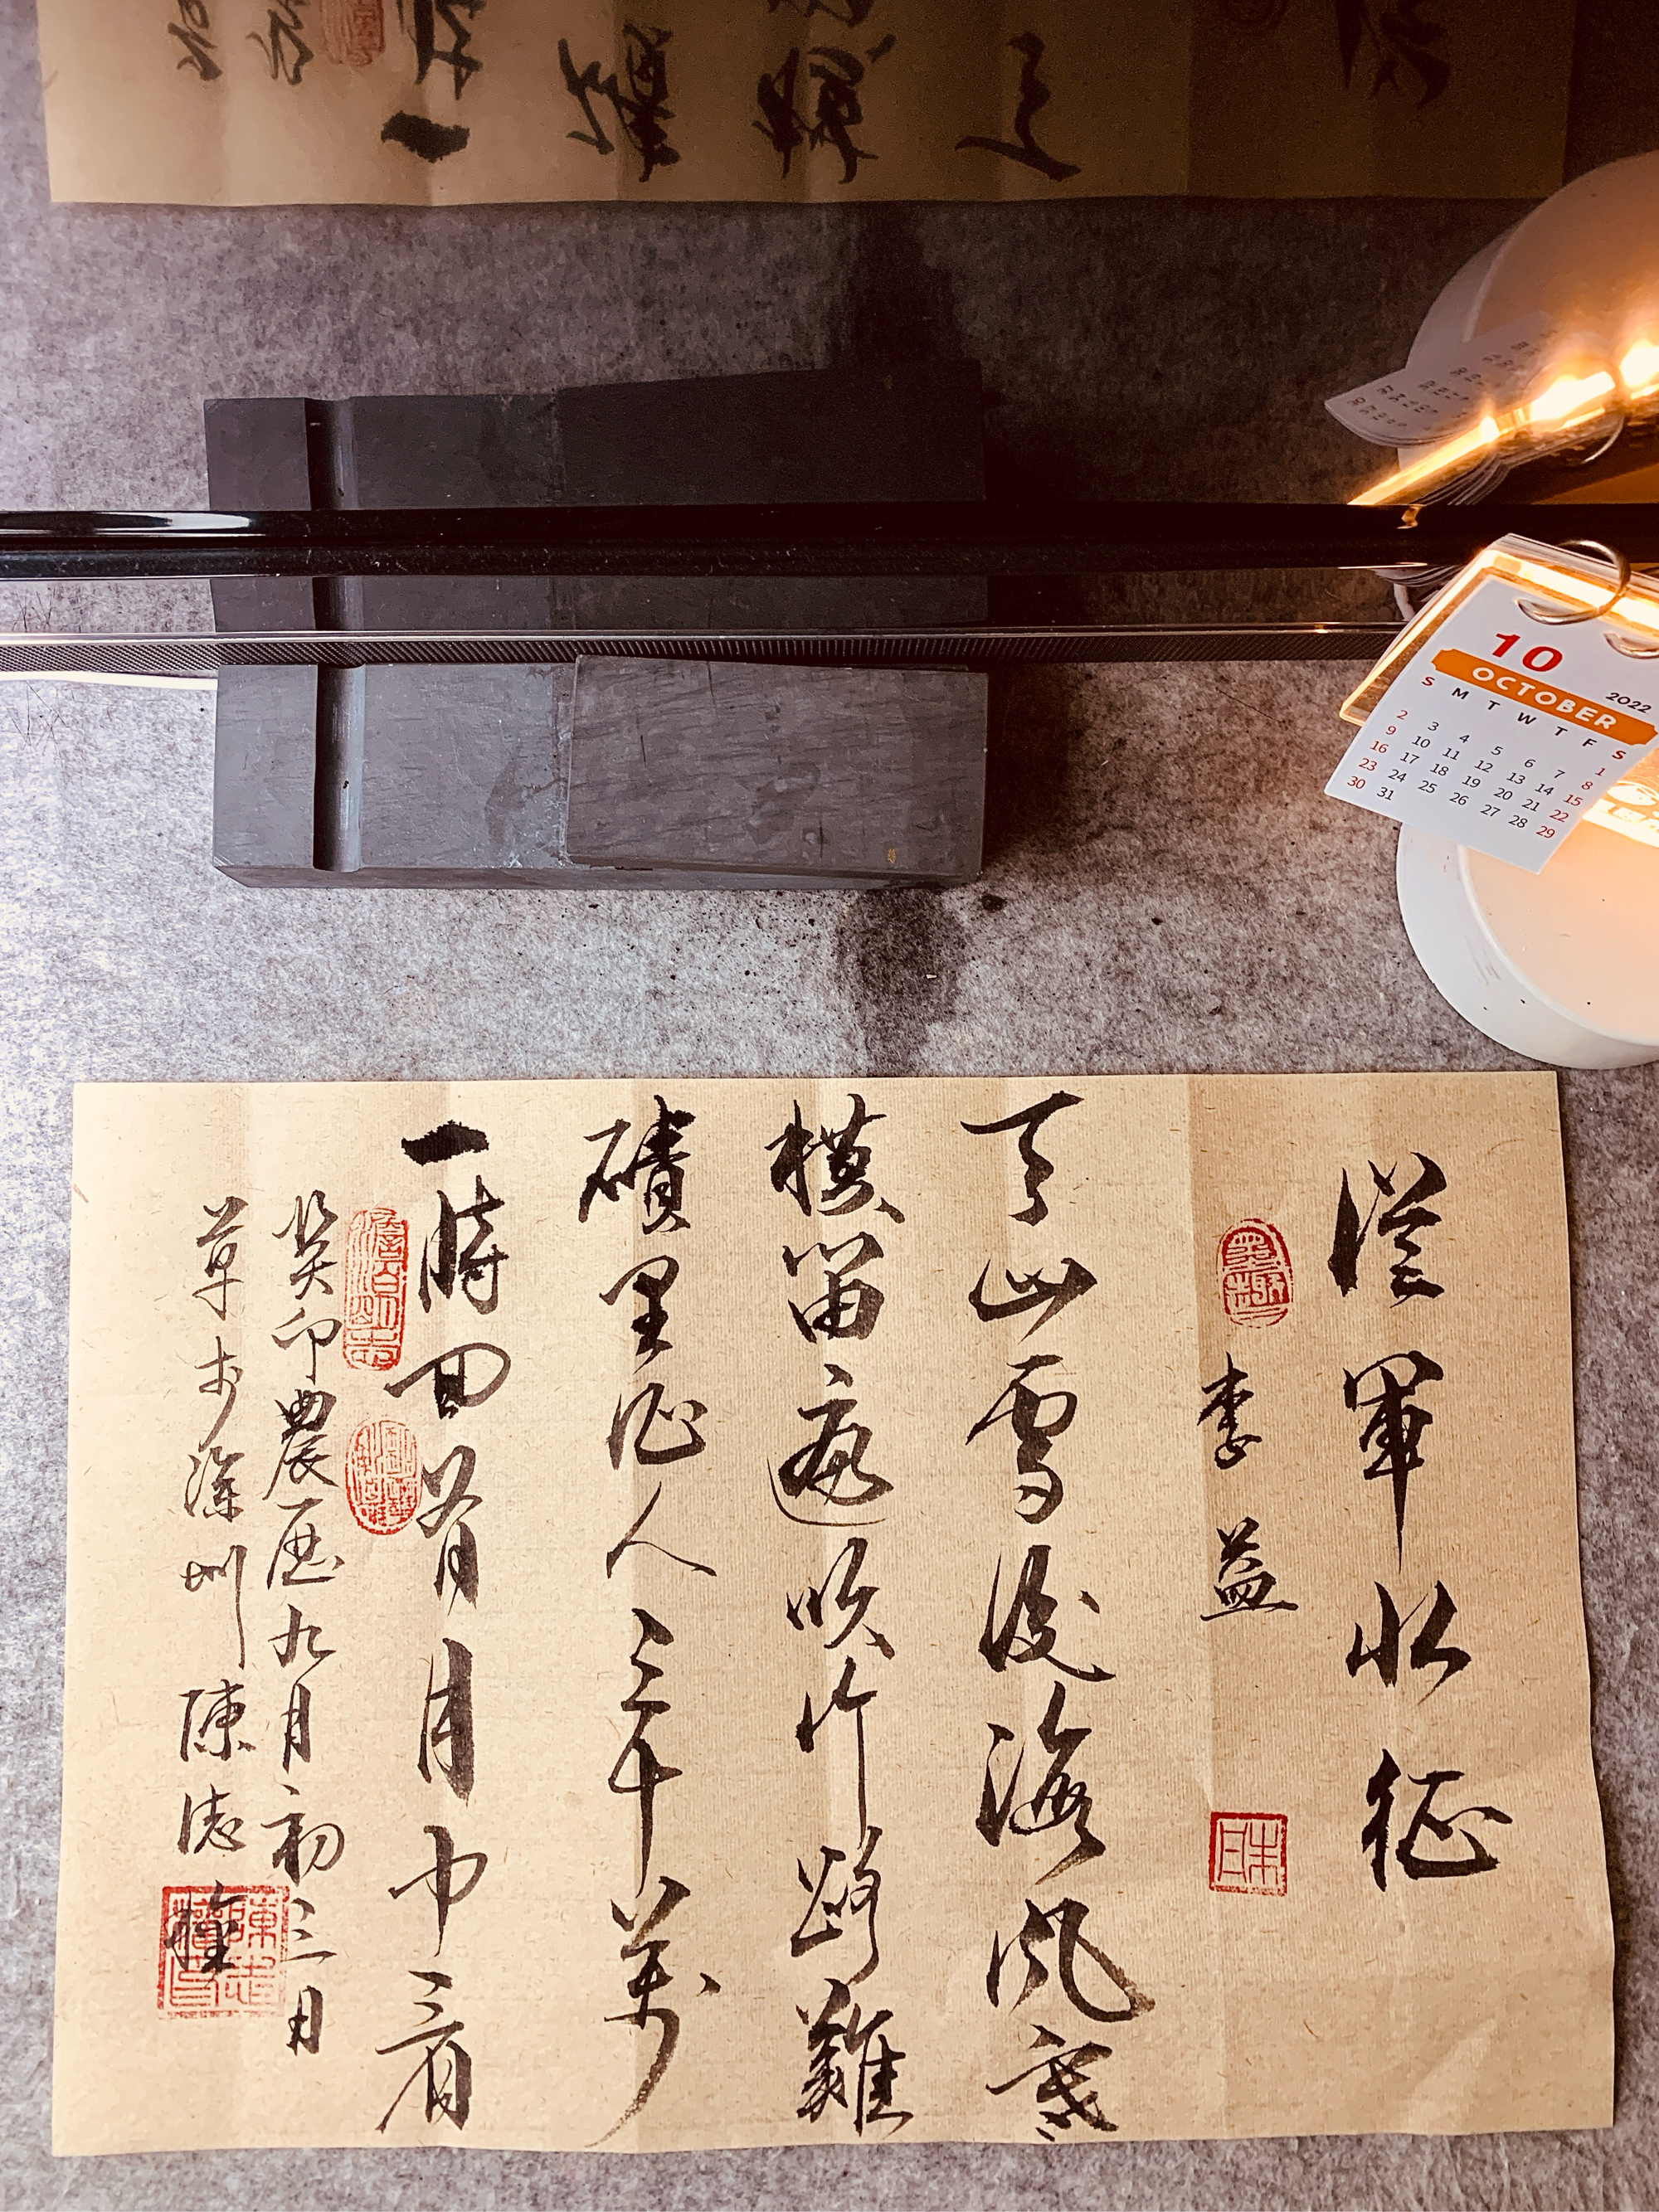 從軍北征
李益
天山雪後海風寒
橫笛遍吹行路難
磧里征人三十萬
一時回首月中看
癸卯農歷九月初三日
草於深圳陳誌權
10
OCTOBER
2022
S M T W T F S
1
2 3 4 5 6 7 8
9 10 11 12 13 14 15
16 17 18 19 20 21 22
23 24 25 26 27 28 29
30 31